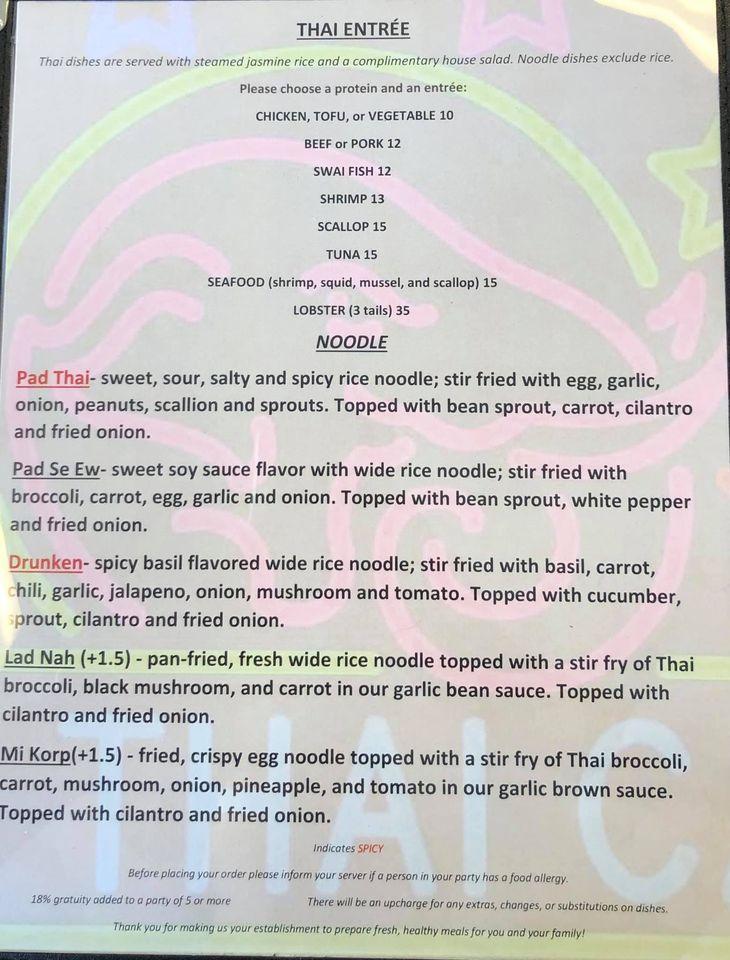 THAI ENTRÉE
Thai dishes are served with steamed jasmine rice and a complimentary house salad. Noodle dishes exclude rice.
Please choose a protein and an entrée:
CHICKEN, TOFU, or VEGETABLE 10
BEEF or PORK 12
SWAI FISH 12
SHRIMP 13
SCALLOP 15
TUNA 15
SEAFOOD (shrimp, squid, mussel, and scallop) 15
LOBSTER (3 tails) 35
NOODLE
Pad Thai- sweet, sour, salty and spicy rice noodle; stir fried with egg, garlic,
onion, peanuts, scallion and sprouts. Topped with bean sprout, carrot, cilantro
and fried onion.
Pad Se Ew- sweet soy sauce flavor with wide rice noodle; stir fried with
broccoli, carrot, egg, garlic and onion. Topped with bean sprout, white pepper
and fried onion.
Drunken- spicy basil flavored wide rice noodle; stir fried with basil, carrot,
chili, garlic, jalapeno, onion, mushroom and tomato. Topped with cucumber,
sprout, cilantro and fried onion.
Lad Nah (+1.5) - pan-fried, fresh wide rice noodle topped with a stir fry of Thai
broccoli, black mushroom, and carrot in our garlic bean sauce. Topped with
cilantro and fried onion.
Mi Korp(+1.5) - fried, crispy egg noodle topped with a stir fry of Thai broccoli,
carrot, mushroom, onion, pineapple, and tomato in our garlic brown sauce.
Topped with cilantro and fried onion.
THAI C
Indicates SPICY
Before placing your order please inform your server if a person in your party has a food allergy.
18% gratuity added to a party of 5 or more There will be an upcharge for any extras, changes, or substitutions on dishes.
Thank you for making us your establishment to prepare fresh, healthy meals for you and your family!